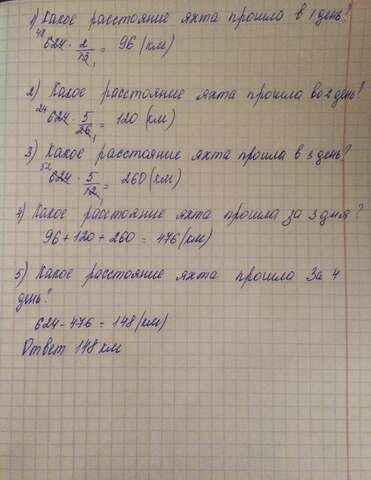 1) Какое расстояние яхта прошла в 1 день?
48 624 · 2/13 1 = 96 (км)
2) Какое расстояние яхта прошла во 2 день?
24 624 · 5/26 1 = 120 (км)
3) Какое расстояние яхта прошла в 3 день?
52 624 · 5/12 1 = 260 (км)
4) Какое расстояние яхта прошла за 3 дня?
96 + 120 + 260 = 476 (км)
5) Какое расстояние яхта прошла за 4
день?
624 - 476 = 148 (км)
Ответ 148 км